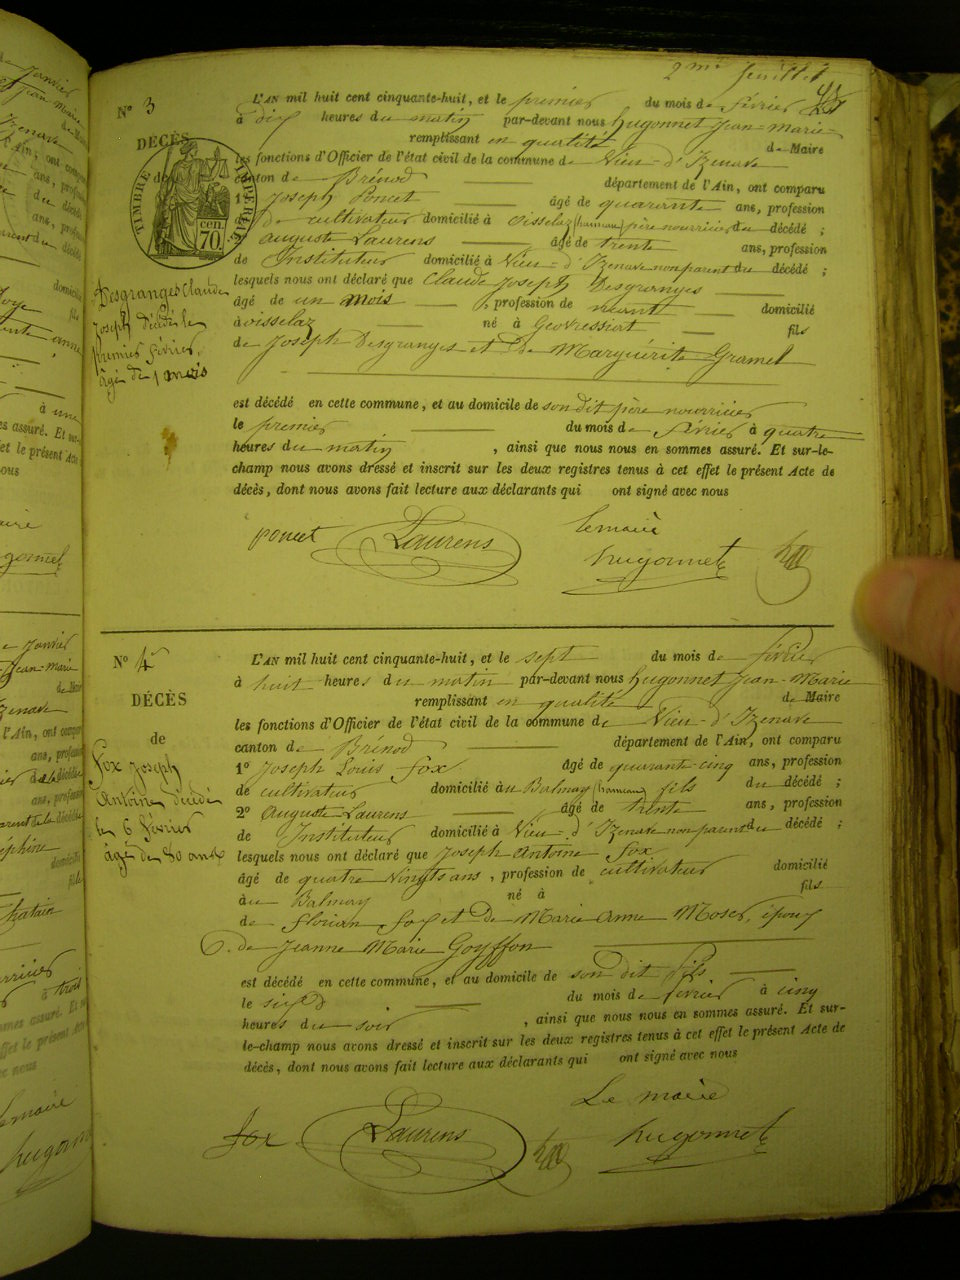 2me feuillet
No 3
DÉCÈS
de
TIMBRE IMPÉRIAL
70 cen.
Desgranges Claude
Joseph décédé le
premier février,
âgé de 1 mois
L'AN mil huit cent cinquante-huit, et le premier du mois de février
à dix heures du matin par-devant nous hugonnet Jean-Marie
remplissant en qualité de Maire
les fonctions d'Officier de l'état civil de la commune de Vieu-d'Izenave
canton de Brénod département de l'Ain, ont comparu
1o Joseph Poncet âgé de quarante ans, profession
de cultivateur domicilié à oisselaz (hameau) père nourricier du décédé ;
Auguste Laurens âgé de trente ans, profession
de Instituteur domicilié à Vieu-d'Izenave non parent du décédé ;
lesquels nous ont déclaré que Claude Joseph Desgranges
âgé de un mois , profession de néant domicilié
à oisselaz né à Geovressiat fils
de Joseph Desgranges et de Marguérite Gramel
est décédé en cette commune, et au domicile de son dit père nourricier
le premier du mois de février à quatre
heures du matin , ainsi que nous nous en sommes assuré. Et sur-le-
champ nous avons dressé et inscrit sur les deux registres tenus à cet effet le présent Acte de
décès, dont nous avons fait lecture aux déclarants qui ont signé avec nous
poncet Laurens le maire
hugonnet
No 4
DÉCÈS
de
Fox Joseph
Antoine décédé
le 6 février
âgé de 80 ans
L'AN mil huit cent cinquante-huit, et le sept du mois de février
à huit heures du matin par-devant nous hugonnet Jean-Marie
remplissant en qualité de Maire
les fonctions d'Officier de l'état civil de la commune de Vieu-d'Izenave
canton de Brénod département de l'Ain, ont comparu
1o Joseph Louis fox âgé de quarante-cinq ans, profession
de cultivateur domicilié à u Balmay (hameau) fils du décédé ;
2o Auguste Laurens âgé de trente ans, profession
de Instituteur domicilié à Vieu-d'Izenave non parent du décédé ;
lesquels nous ont déclaré que Joseph Antoine fox
âgé de quatre vingts ans , profession de cultivateur domicilié
à u Balmay né à fils
de florian fox et de Marie Anne Moser, époux
de Jeanne Marie Goyffon
est décédé en cette commune, et au domicile de son dit fils
le six du mois de février à cinq
heures du soir , ainsi que nous nous en sommes assuré. Et sur-
le-champ nous avons dressé et inscrit sur les deux registres tenus à cet effet le présent Acte de
décès, dont nous avons fait lecture aux déclarants qui ont signé avec nous
fox Laurens Le maire
hugonnet